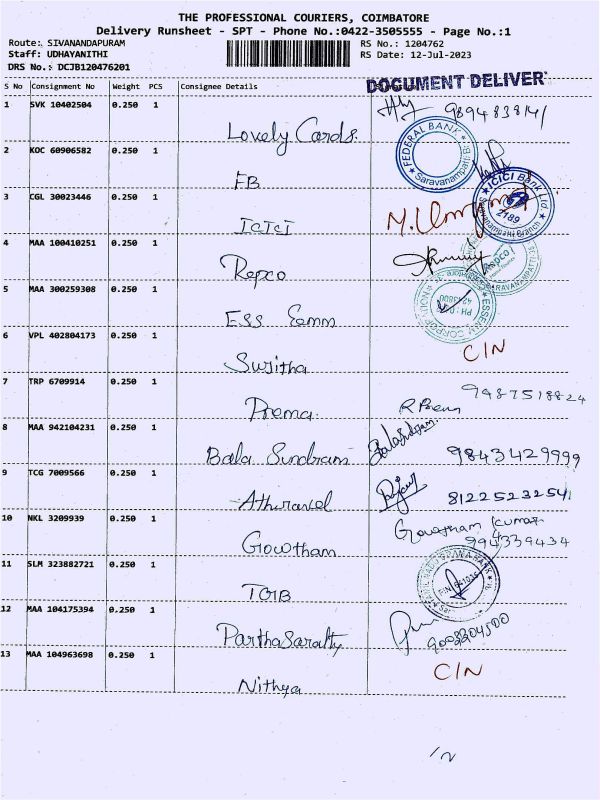 THE PROFESSIONAL COURIERS, COIMBATORE
Delivery Runsheet - SPT - Phone No.:0422-3505555 - Page No.:1
Route: SIVANANDAPURAM RS No.: 1204762
Staff: UDHAYANITHI RS Date: 12-Jul-2023
DRS No.: DCJB120476201
DOCUMENT DELIVER
S No Consignment No Weight PCS Consignee Details
1 SVK 10402504 0.250 1 Lovely Cards. 9894838141
FEDERAL BANK Saravanampatti
2 KOC 60906582 0.250 1 FB
ICICI Bank Ltd 2189 Branch
3 CGL 30023446 0.250 1 ICICI
4 MAA 100410251 0.250 1 Repco
Repco
5 MAA 300259308 0.250 1 Ess Eemm
ESSEM CORPORATION
6 VPL 402804173 0.250 1 Surjitha CIN
7 TRP 6709914 0.250 1 Prema. 9987518824
8 MAA 942104231 0.250 1 Bala Sundram Balasundram. 9843429999
9 TCG 7009566 0.250 1 8122523254
10 NKL 3209939 0.250 1 Gowtham Gowtham Kumar
994339434
11 SLM 323882721 0.250 1
12 MAA 104175394 0.250 1 Parthasarathy
13 MAA 104963698 0.250 1 Nithya CIN